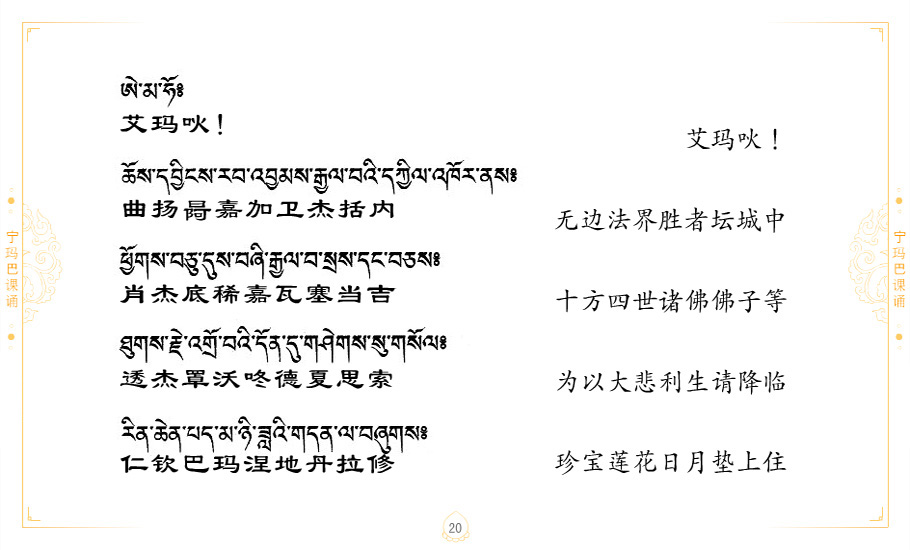 ཨེ་མ་ཧོ༔
艾玛吙！
艾玛吙！
ཆོས་དབྱིངས་རབ་འབྱམས་རྒྱལ་བའི་དཀྱིལ་འཁོར་ནས༔
曲扬曷嘉加卫杰括内
无边法界胜者坛城中
ཕྱོགས་བཅུ་དུས་བཞི་རྒྱལ་བ་སྲས་དང་བཅས༔
肖杰底稀嘉瓦塞当吉
十方四世诸佛佛子等
ཐུགས་རྗེ་འགྲོ་བའི་དོན་དུ་གཤེགས་སུ་གསོལ༔
透杰罩沃咚德夏思索
为以大悲利生请降临
རིན་ཆེན་པད་མ་ཉི་ཟླའི་གདན་ལ་བཞུགས༔
仁钦巴玛涅地丹拉修
珍宝莲花日月垫上住
宁玛巴课诵
宁玛巴课诵
20